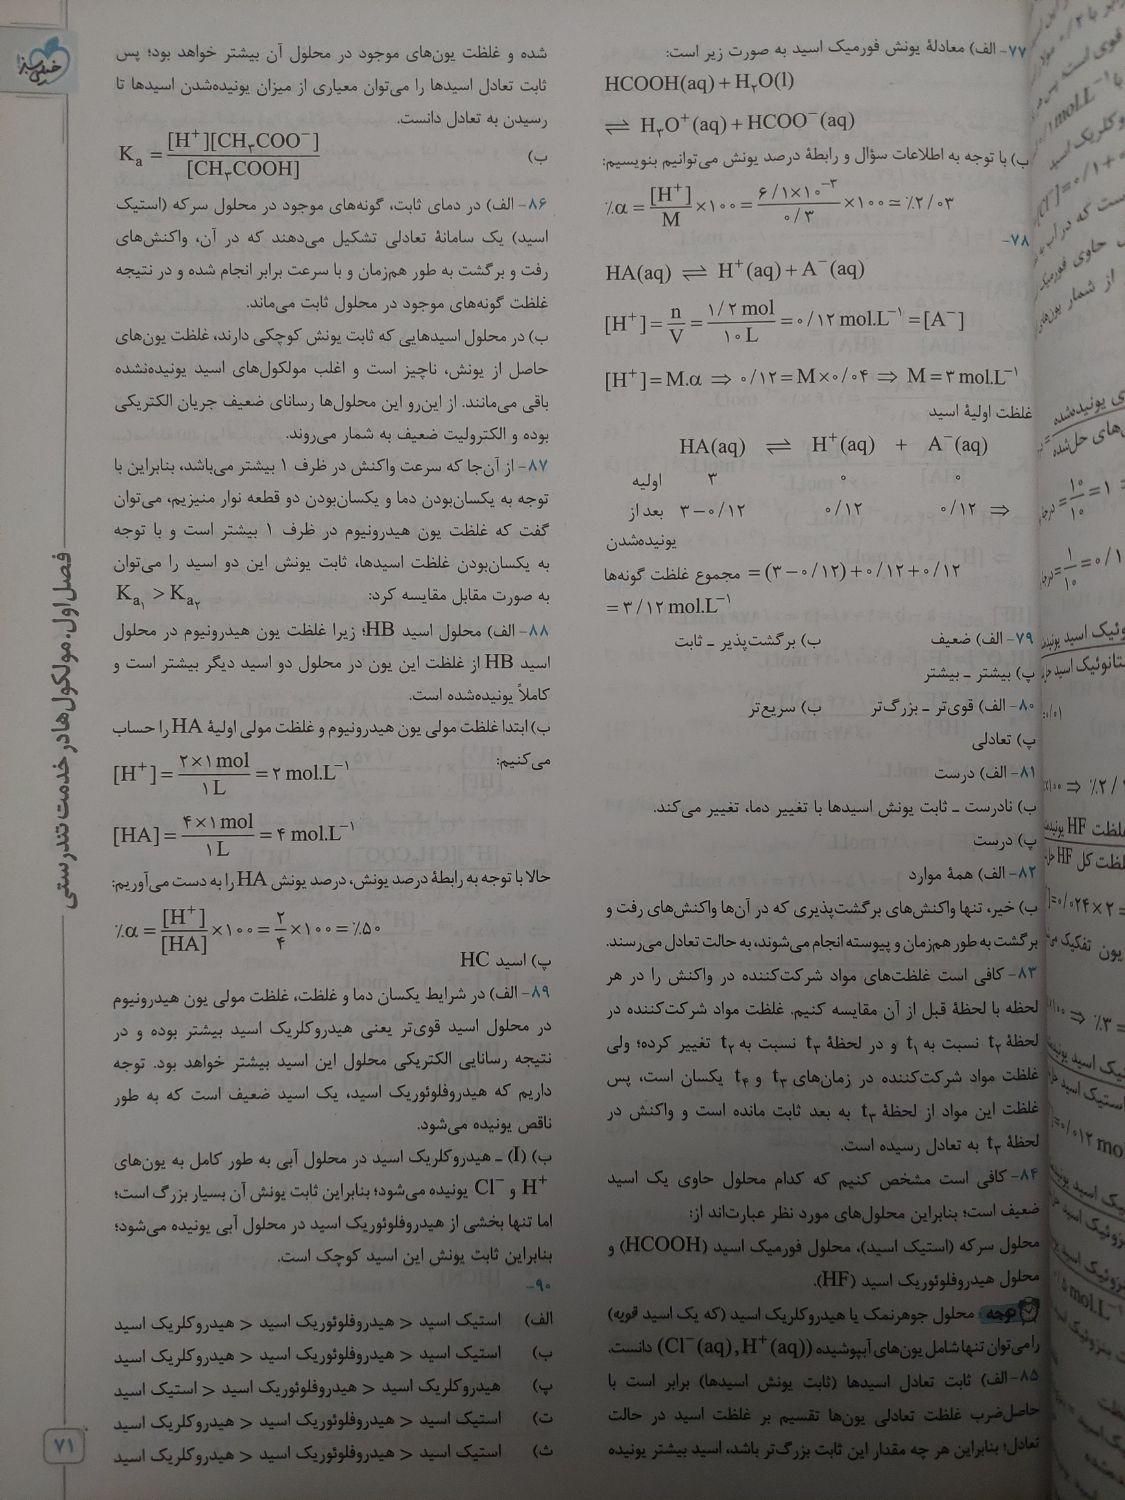 ۷۷- الف) معادلهٔ یونش فورمیک اسید به صورت زیر است:
HCOOH(aq) + H۲O(l)
⇌ H۳O⁺(aq) + HCOO⁻(aq)
ب) با توجه به اطلاعات سؤال و رابطهٔ درصد یونش می‌توانیم بنویسیم:
٪α = [H⁺]/M ×۱۰۰ = ۶/۱×۱۰⁻³/۰/۳ ×۱۰۰ ≃ ٪۲/۰۳
۷۸-
HA(aq) ⇌ H⁺(aq) + A⁻(aq)
[H⁺] = n/V = ۱/۲ mol/۱۰ L = ۰/۱۲ mol.L⁻¹ = [A⁻]
[H⁺] = M.α ⇒ ۰/۱۲ = M×۰/۰۴ ⇒ M = ۳ mol.L⁻¹
غلظت اولیهٔ اسید
HA(aq) ⇌ H⁺(aq) + A⁻(aq)
اولیه ۳ ۰ ۰
بعد از ۳-۰/۱۲ ۰/۱۲ ۰/۱۲ ⇒
یونیده‌شدن
مجموع غلظت گونه‌ها = (۳-۰/۱۲)+۰/۱۲+۰/۱۲
= ۳/۱۲ mol.L⁻¹
۷۹- الف) ضعیف ب) برگشت‌پذیر ـ ثابت
پ) بیشتر ـ بیشتر
۸۰- الف) قوی‌تر ـ بزرگ‌تر ب) سریع‌تر
پ) تعادلی
۸۱- الف) درست
ب) نادرست ـ ثابت یونش اسیدها با تغییر دما، تغییر می‌کند.
پ) درست
۸۲- الف) همهٔ موارد
ب) خیر، تنها واکنش‌های برگشت‌پذیری که در آن‌ها واکنش‌های رفت و
برگشت به طور هم‌زمان و پیوسته انجام می‌شوند، به حالت تعادل می‌رسند.
۸۳- کافی است غلظت‌های مواد شرکت‌کننده در واکنش را در هر
لحظه با لحظهٔ قبل از آن مقایسه کنیم. غلظت مواد شرکت‌کننده در
لحظهٔ t۲ نسبت به t۱ و در لحظهٔ t۳ نسبت به t۲ تغییر کرده؛ ولی
غلظت مواد شرکت‌کننده در زمان‌های t۳ و t۴ یکسان است، پس
غلظت این مواد از لحظهٔ t۳ به بعد ثابت مانده است و واکنش در
لحظهٔ t۳ به تعادل رسیده است.
۸۴- کافی است مشخص کنیم که کدام محلول حاوی یک اسید
ضعیف است؛ بنابراین محلول‌های مورد نظر عبارت‌اند از:
محلول سرکه (استیک اسید)، محلول فورمیک اسید (HCOOH) و
محلول هیدروفلوئوریک اسید (HF).
توجه محلول جوهرنمک یا هیدروکلریک اسید (که یک اسید قویه)
را می‌توان تنها شامل یون‌های آبپوشیده (Cl⁻(aq), H⁺(aq)) دانست.
۸۵- الف) ثابت تعادل اسیدها (ثابت یونش اسیدها) برابر است با
حاصل‌ضرب غلظت تعادلی یون‌ها تقسیم بر غلظت اسید در حالت
تعادل؛ بنابراین هر چه مقدار این ثابت بزرگ‌تر باشد، اسید بیشتر یونیده
شده و غلظت یون‌های موجود در محلول آن بیشتر خواهد بود؛ پس
ثابت تعادل اسیدها را می‌توان معیاری از میزان یونیده‌شدن اسیدها تا
رسیدن به تعادل دانست.
ب) Ka = [H⁺][CH۳COO⁻]/[CH۳COOH]
۸۶- الف) در دمای ثابت، گونه‌های موجود در محلول سرکه (استیک
اسید) یک سامانهٔ تعادلی تشکیل می‌دهند که در آن، واکنش‌های
رفت و برگشت به طور هم‌زمان و با سرعت برابر انجام شده و در نتیجه
غلظت گونه‌های موجود در محلول ثابت می‌ماند.
ب) در محلول اسیدهایی که ثابت یونش کوچکی دارند، غلظت یون‌های
حاصل از یونش، ناچیز است و اغلب مولکول‌های اسید یونیده‌نشده
باقی می‌مانند. از این‌رو این محلول‌ها رسانای ضعیف جریان الکتریکی
بوده و الکترولیت ضعیف به شمار می‌روند.
۸۷- از آن‌جا که سرعت واکنش در ظرف ۱ بیشتر می‌باشد، بنابراین با
توجه به یکسان‌بودن دما و یکسان‌بودن دو قطعه نوار منیزیم، می‌توان
گفت که غلظت یون هیدرونیوم در ظرف ۱ بیشتر است و با توجه
به یکسان‌بودن غلظت اسیدها، ثابت یونش این دو اسید را می‌توان
به صورت مقابل مقایسه کرد: Ka۱ > Ka۲
۸۸- الف) محلول اسید HB؛ زیرا غلظت یون هیدرونیوم در محلول
اسید HB از غلظت این یون در محلول دو اسید دیگر بیشتر است و
کاملاً یونیده‌شده است.
ب) ابتدا غلظت مولی یون هیدرونیوم و غلظت مولی اولیهٔ HA را حساب
می‌کنیم: [H⁺] = ۲×۱ mol/۱ L = ۲ mol.L⁻¹
[HA] = ۴×۱ mol/۱ L = ۴ mol.L⁻¹
حالا با توجه به رابطهٔ درصد یونش، درصد یونش HA را به دست می‌آوریم:
٪α = [H⁺]/[HA] ×۱۰۰ = ۲/۴ ×۱۰۰ = ٪۵۰
پ) اسید HC
۸۹- الف) در شرایط یکسان دما و غلظت، غلظت مولی یون هیدرونیوم
در محلول اسید قوی‌تر یعنی هیدروکلریک اسید بیشتر بوده و در
نتیجه رسانایی الکتریکی محلول این اسید بیشتر خواهد بود. توجه
داریم که هیدروفلوئوریک اسید، یک اسید ضعیف است که به طور
ناقص یونیده می‌شود.
ب) (I) ـ هیدروکلریک اسید در محلول آبی به طور کامل به یون‌های
H⁺ و Cl⁻ یونیده می‌شود؛ بنابراین ثابت یونش آن بسیار بزرگ است؛
اما تنها بخشی از هیدروفلوئوریک اسید در محلول آبی یونیده می‌شود؛
بنابراین ثابت یونش این اسید کوچک است.
۹۰-
الف) استیک اسید < هیدروفلوئوریک اسید < هیدروکلریک اسید
ب) استیک اسید < هیدروفلوئوریک اسید < هیدروکلریک اسید
پ) هیدروکلریک اسید < هیدروفلوئوریک اسید < استیک اسید
ت) استیک اسید < هیدروفلوئوریک اسید < هیدروکلریک اسید
ث) استیک اسید < هیدروفلوئوریک اسید < هیدروکلریک اسید
فصل اول: مولکول‌ها در خدمت تندرستی
۷۱
خیلی سبز